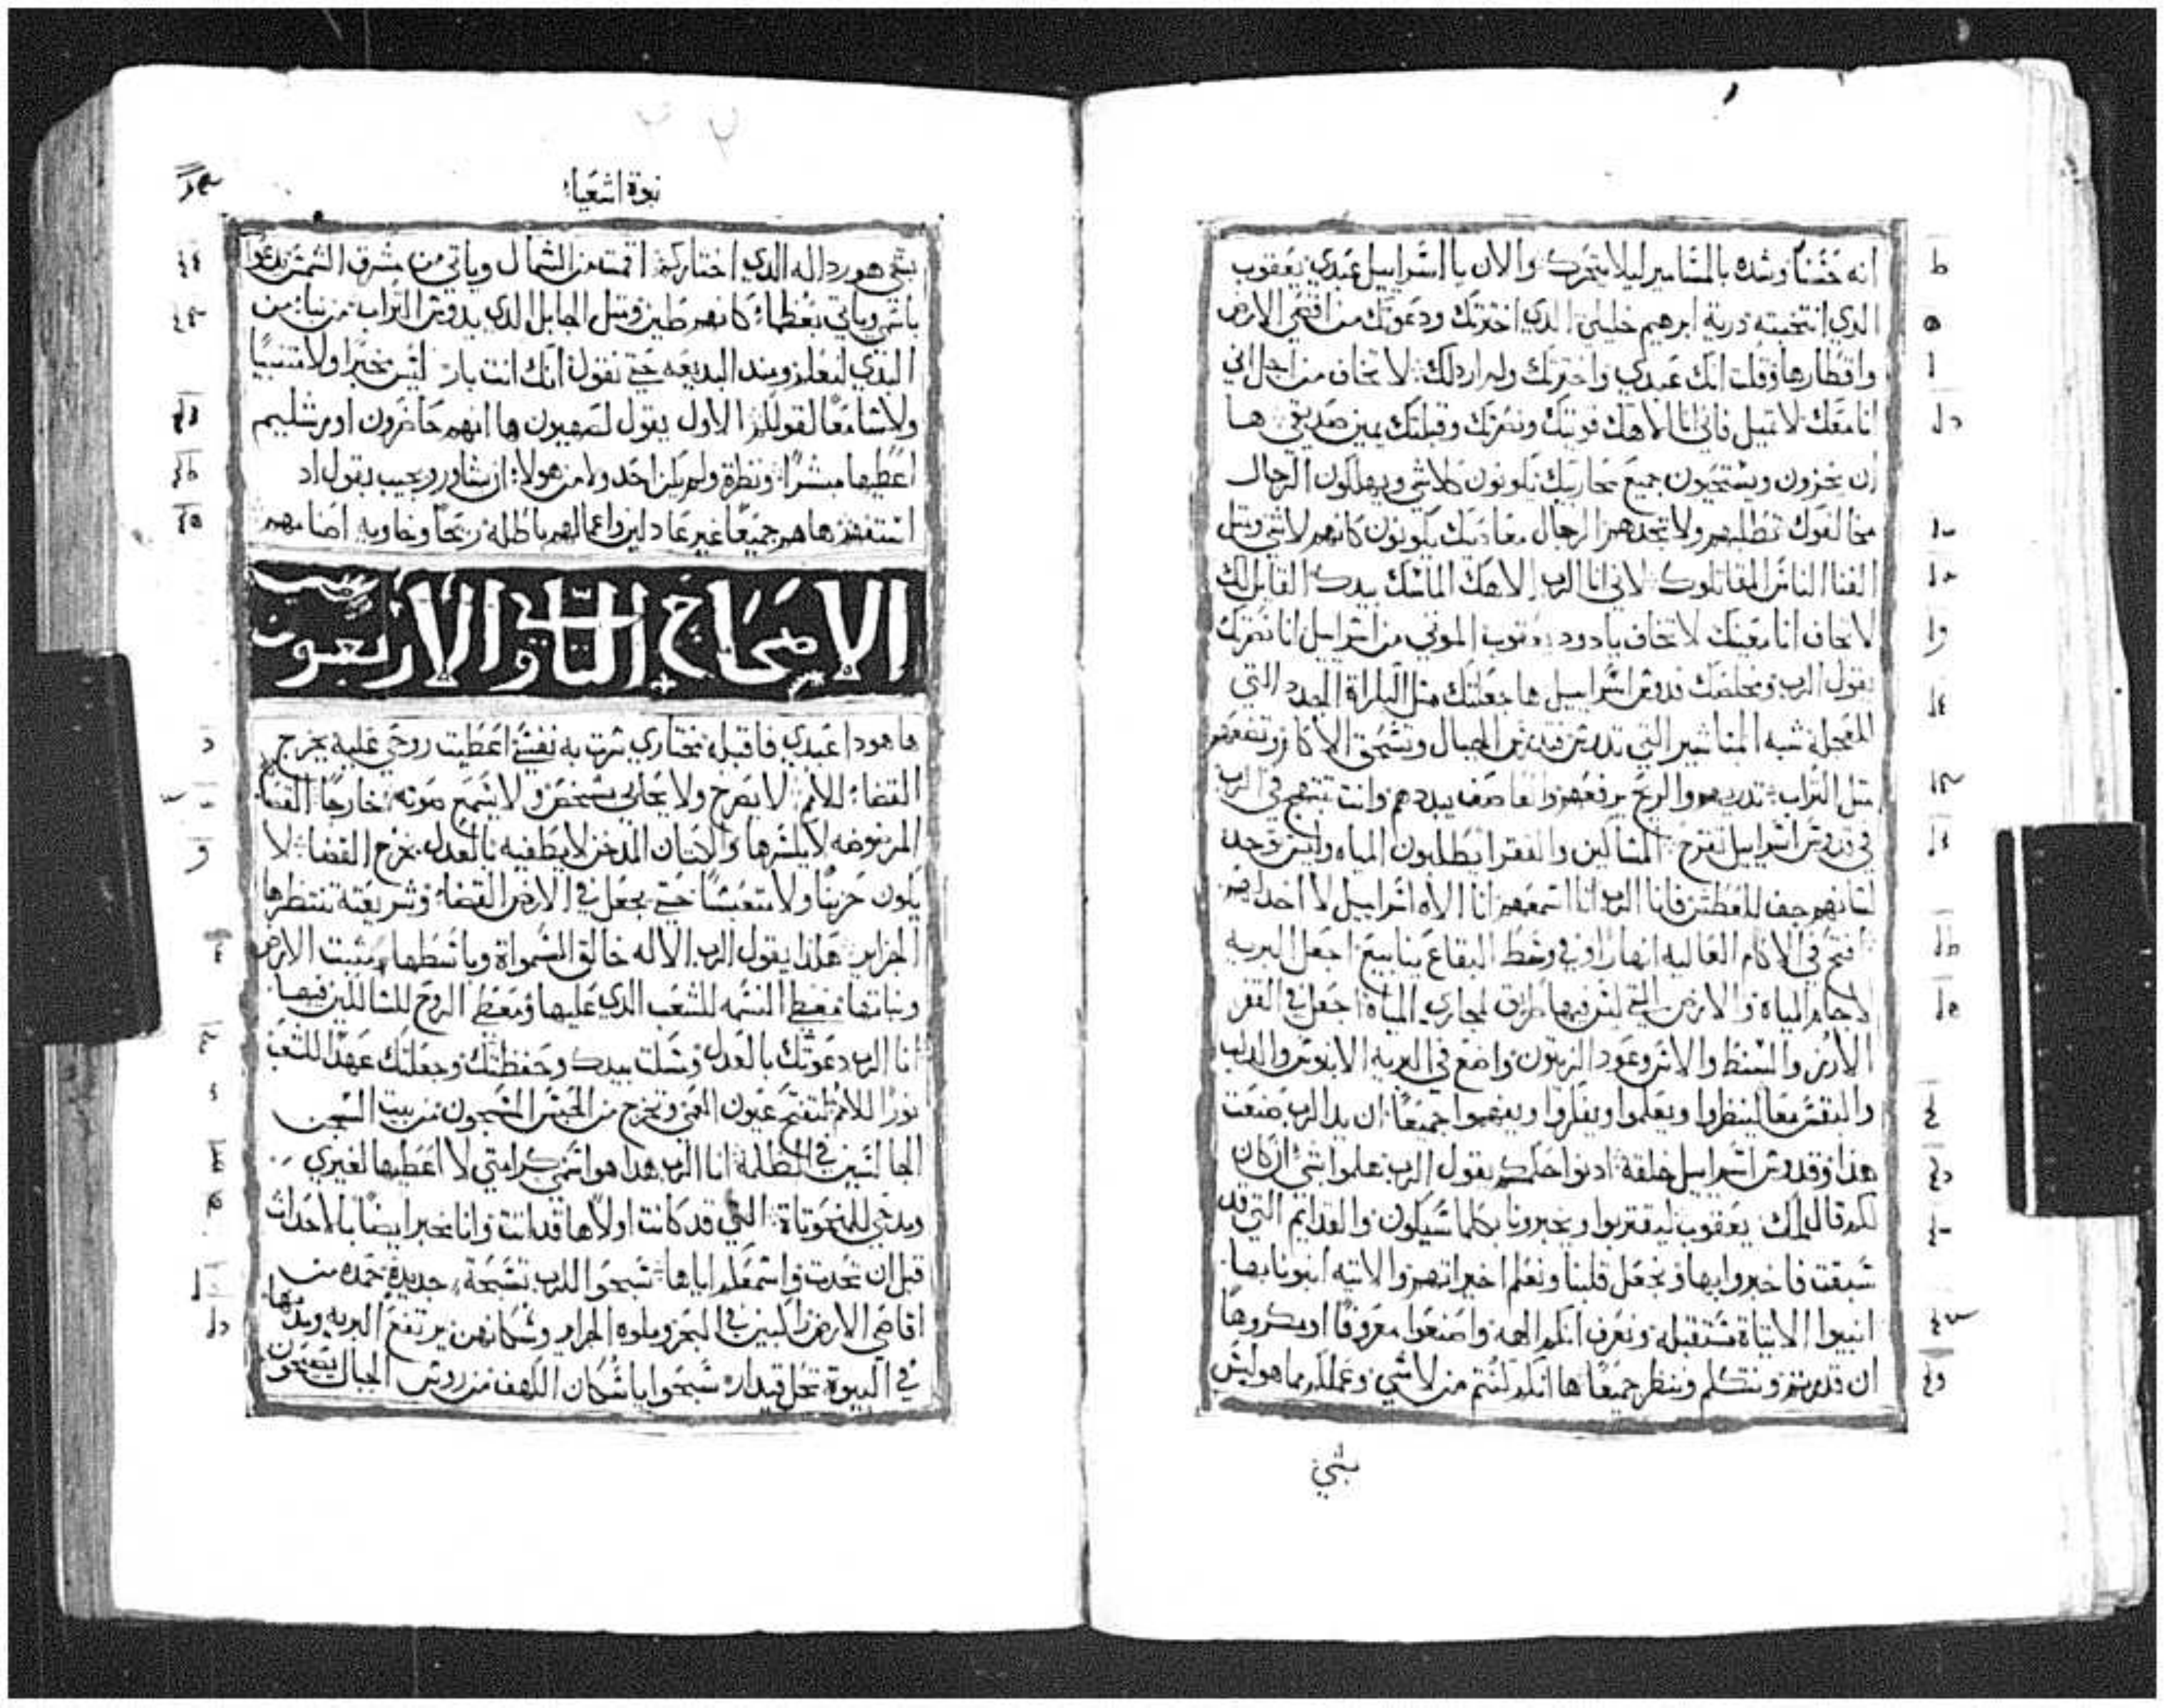 انه حسناً وشده بالمسامير ليلا يتحرك والان يا اسراييل عبدي يعقوب
الذي انتخبته درية ابرهيم خليلي الذي اخترتك ودعوتك من اقصي الارض
واقطارها وقلت انك عبدي واخترتك ولم اردلك لا تخاف من اجل اني
انا معك لا تميل فاني انا الاهك قويتك ونصرتك وقبلتك يمين صديقي ها
ان يخزون ويستحيون جميع محاربيك يكونون كلاشي ويهلكون الرجال
مخالفوك تطلبهم ولا تجدهم الرجال معاديك يكونون كانهم لاشي ومتل
الفنا الناس المقاتلوك لاني انا الرب الاهك الماسك بيدك القايل لك
لا تخاف انا معينك لا تخاف يا دود يعقوب الموتي من اسراييل انا نصرتك
يقول الرب ومخلصك قدوس اسراييل ها جعلتك متل البكراة الجدد التي
للعجلة شبه المناشير التي تدرس فتدرس الجبال وتسحق الاكام وتضعهم
متل التراب تدريهم والريح يرفعهم والعاصف يبددهم وانت تبتهج في الرب
في قدوس اسراييل تفرح المساكين والفقرا يطلبون المياه وليس توجد
لسانهم جف للعطش فانا الرب انا اسمعهم انا الاه اسراييل لا اخداهم
افتح في الاكام العاليه انهار اوفي وسط البقاع ينابيع اجعل البريه
لاجام المياة والارض التي ليس فيها طرق لمجاري المياة اجعل في القفر
الارز والسنط والاس وعود الزيتون واضع في البريه الابنوس والدلب
والبقس معا لينظروا ويعلموا ويفكروا ويفهموا جميعاً ان يد الرب صنعت
هذا وقدوس اسراييل خلقه ادنوا حكمكم يقول الرب هلموا بشي ان كان
لكم قال ملك يعقوب ليقتربوا ويخبرونا بكلما سيكون والقدايم التي قد
سبقت فاخبروا بها ونجعل قلبنا ونعلم اخيراتهم والاتيه انبونا بها
انبيوا الاتياة مستقبله ونعرف انكم الهه واصنعوا معروفا او مكروها
ان قدرتم ونتكلم وننظر جميعًا ها انكم كنتم من لاشي وعملكم مما هو ليس
بشي
نبوة اشعيا
بشي هو رداله الذي اختاركم اقمته من الشمال وياتي من مشرق الشمس يدعوا
باسمي وياتي بعظما كانهم طين ومتل الجابل الذي يدوس التراب من نبا من
البدي لنعلم ومند البديعه حتي نقول انك انت بار ليس مخبرا ولا متنبيًا
ولا سامعا لقولكم الاول يقول لصهيون ها انهم حاضرون اورشليم
اعطيها مبشرًا ونظرة ولم يكن احد ولا من هولا ان يشاور ويجيب بقول اد
استفهم ها هم جميعًا غير عادلين واعمالهم باطله ريحًا وخاويه اصنامهم
الاصحاح التاني والاربعون
ها هودا عبدي فاقبله مختاري سرت به نفسي اعطيت روحي عليه يخرج
القضا للامم لا يصرخ ولا يحابي بشخص ولا يسمع صوته خارجًا القصبة
المرضوضه لا يكسرها والكتان المدخن لا يطفيه بالعدل يخرج القضا لا
يكون حزينًا ولا متعبسًا حتي يجعل في الارض القضا وشريعته تنتظرها
الجزاير هكذا يقول الرب الاله خالق السمواة وباسطها مثبت الارض
ونباتها معطي النسمه للشعب الذي عليها ومعطي الروح للسالكين فيها
انا الرب دعوتك بالعدل ومسكت بيدك وحفظتك وجعلتك عهدًا للشعب
نورًا للامم لتفتح عيون العمي وتخرج من الحبس المسجون من بيت السجن
الجالسين في الظلمه انا الرب هدا هو اسمي كرامتي لا اعطيها لغيري
ومدحي للمنحوتاة التي قد كانت اولا ها قد اتت وانا مخبر ايضًا بالاحدات
قبل ان تحدت واسمعكم اياها سبحوا للرب تسبحة جديدة حمده من
اقاصي الارض راكبين في البحر وملوه الجزاير وسكانهن يرتفع البريه ومدنها
في البيوة تحل قيدار سبحوا يا سكان الكهف من روس الجبال يصيحون